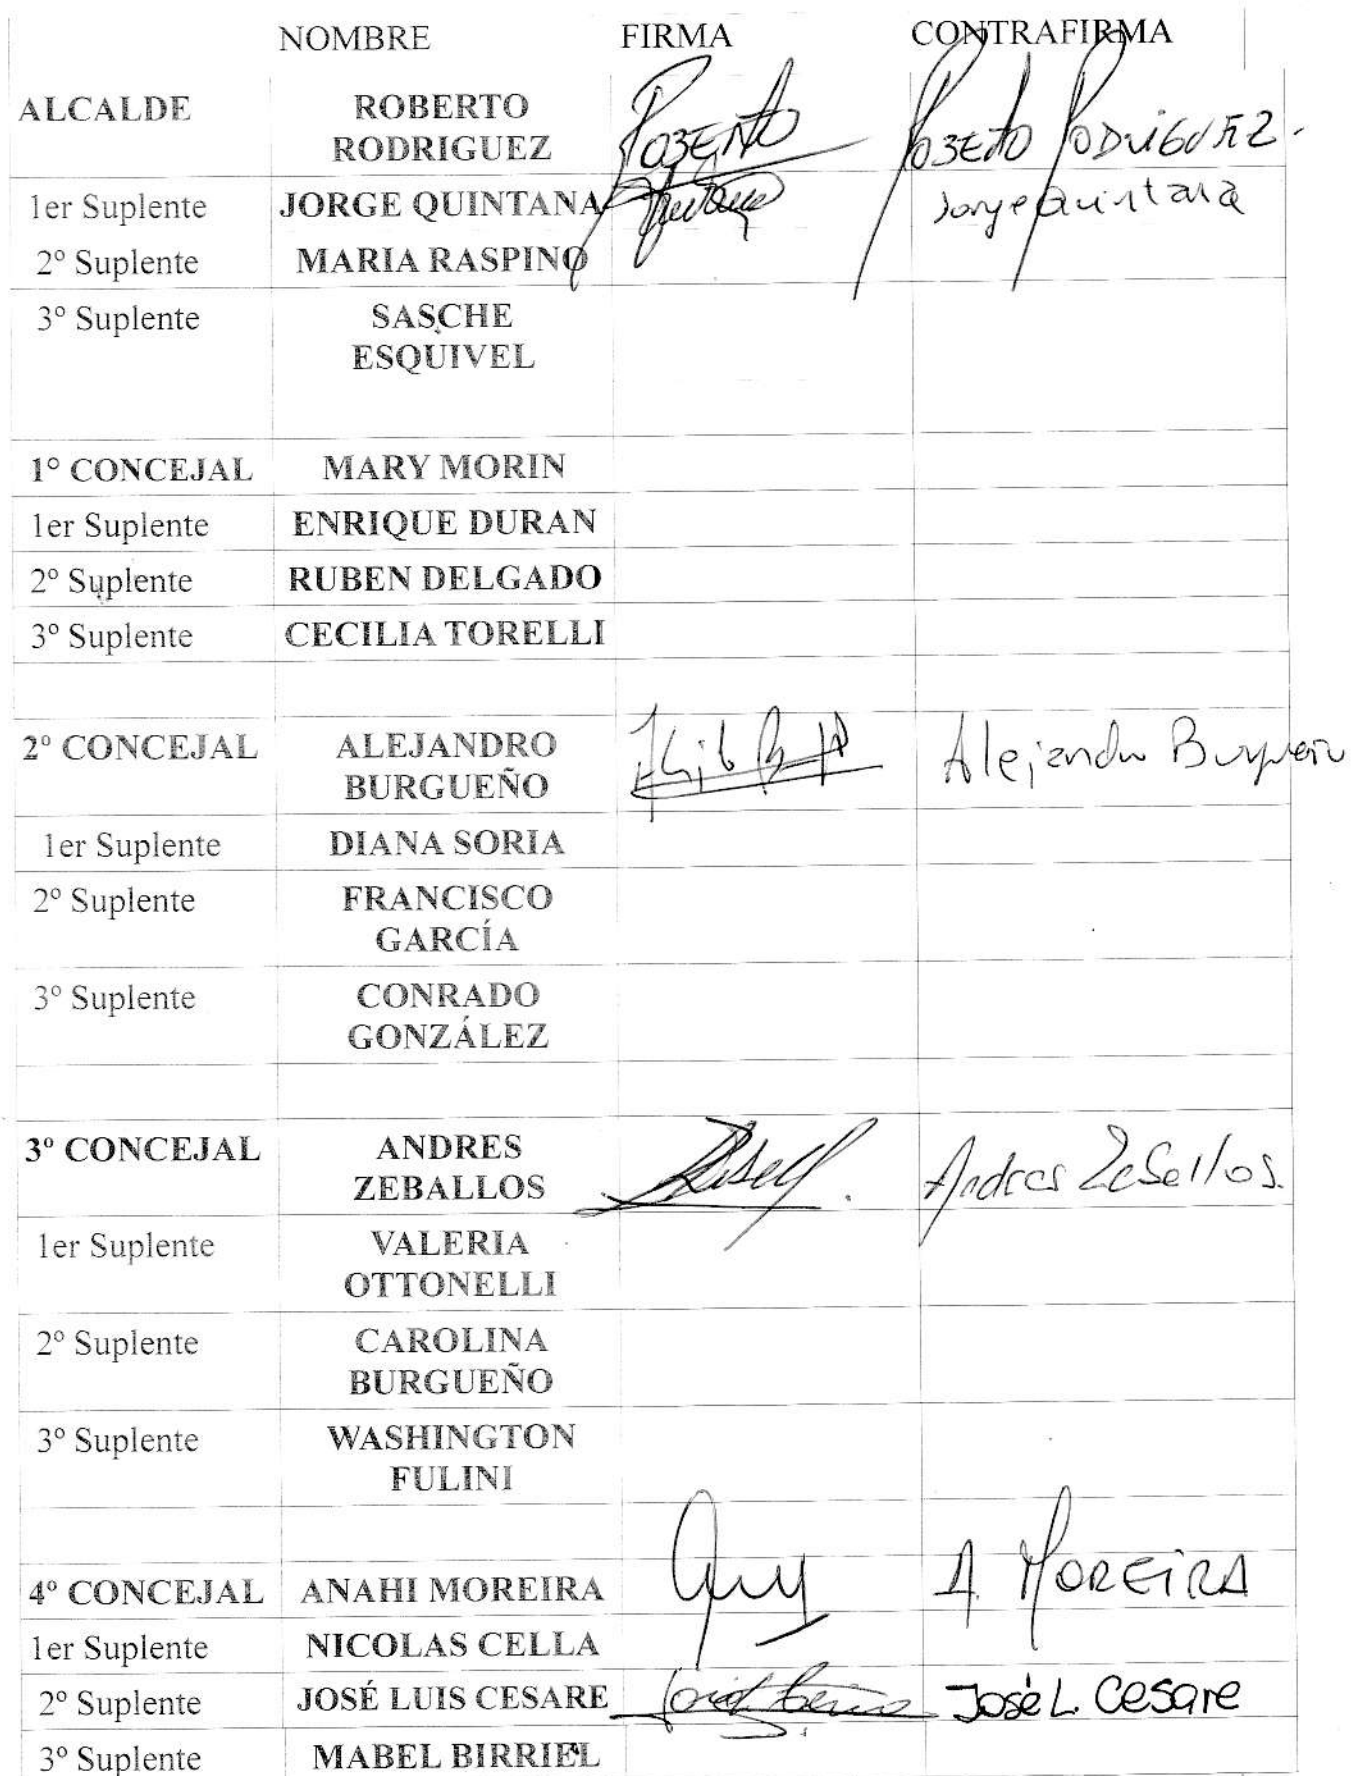 NOMBRE FIRMA CONTRAFIRMA
ALCALDE ROBERTO
RODRIGUEZ
Roberto Roberto Rodriguez.
1er Suplente JORGE QUINTANA Jorge Quintana
2º Suplente MARIA RASPINO
3º Suplente SASCHE
ESQUIVEL
1º CONCEJAL MARY MORIN
1er Suplente ENRIQUE DURAN
2º Suplente RUBEN DELGADO
3º Suplente CECILIA TORELLI
2º CONCEJAL ALEJANDRO
BURGUEÑO
Alejandro Burgueño
1er Suplente DIANA SORIA
2º Suplente FRANCISCO
GARCÍA
3º Suplente CONRADO
GONZÁLEZ
3º CONCEJAL ANDRES
ZEBALLOS
Andres Zeballos.
1er Suplente VALERIA
OTTONELLI
2º Suplente CAROLINA
BURGUEÑO
3º Suplente WASHINGTON
FULINI
4º CONCEJAL ANAHI MOREIRA A. MOREIRA
1er Suplente NICOLAS CELLA
2º Suplente JOSÉ LUIS CESARE José L. Cesare
3º Suplente MABEL BIRRIEL